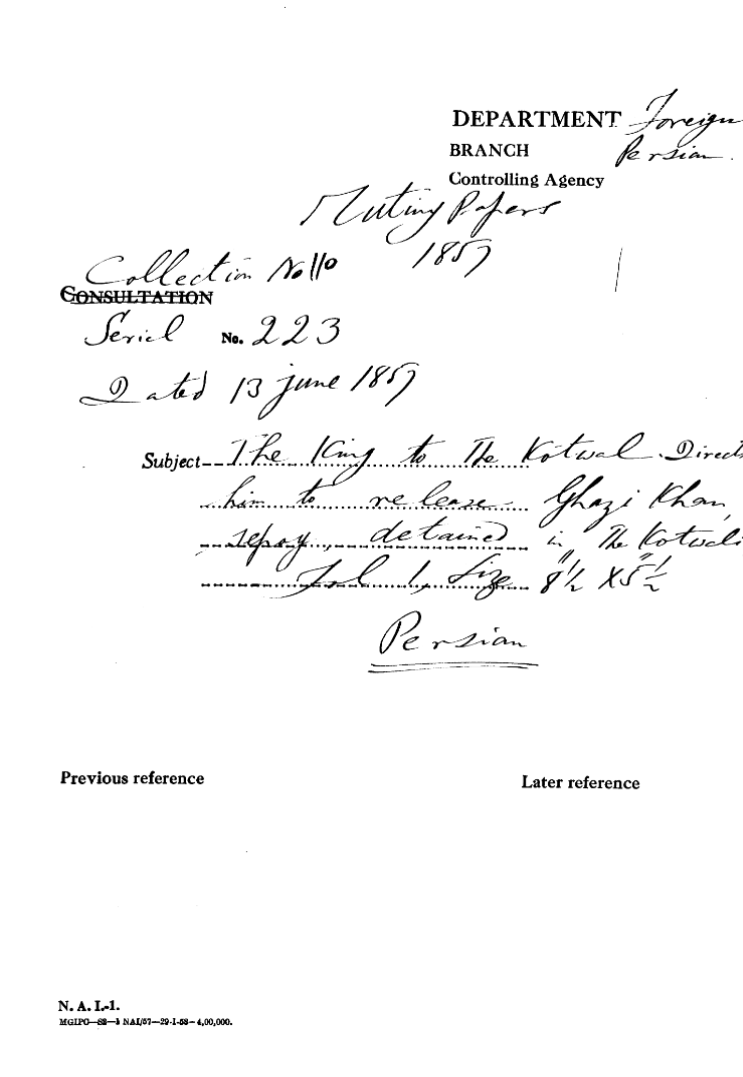 DEPARTMENT Foreign
BRANCH Persian.
Controlling Agency
Mutiny Papers
1857
Collection No 110
CONSULTATION
Serial No. 223
Dated 13 june 1857
Subject The King to The Kotwal. Directs
him to release Ghazi Khan,
sepoy, detained in The Kotwali
Fol. 1, Size 8½" X 5½"
Persian
Previous reference
Later reference
N. A. I.-1.
MGIPC—S2—3 NAI/57—29-1-58—4,00,000.